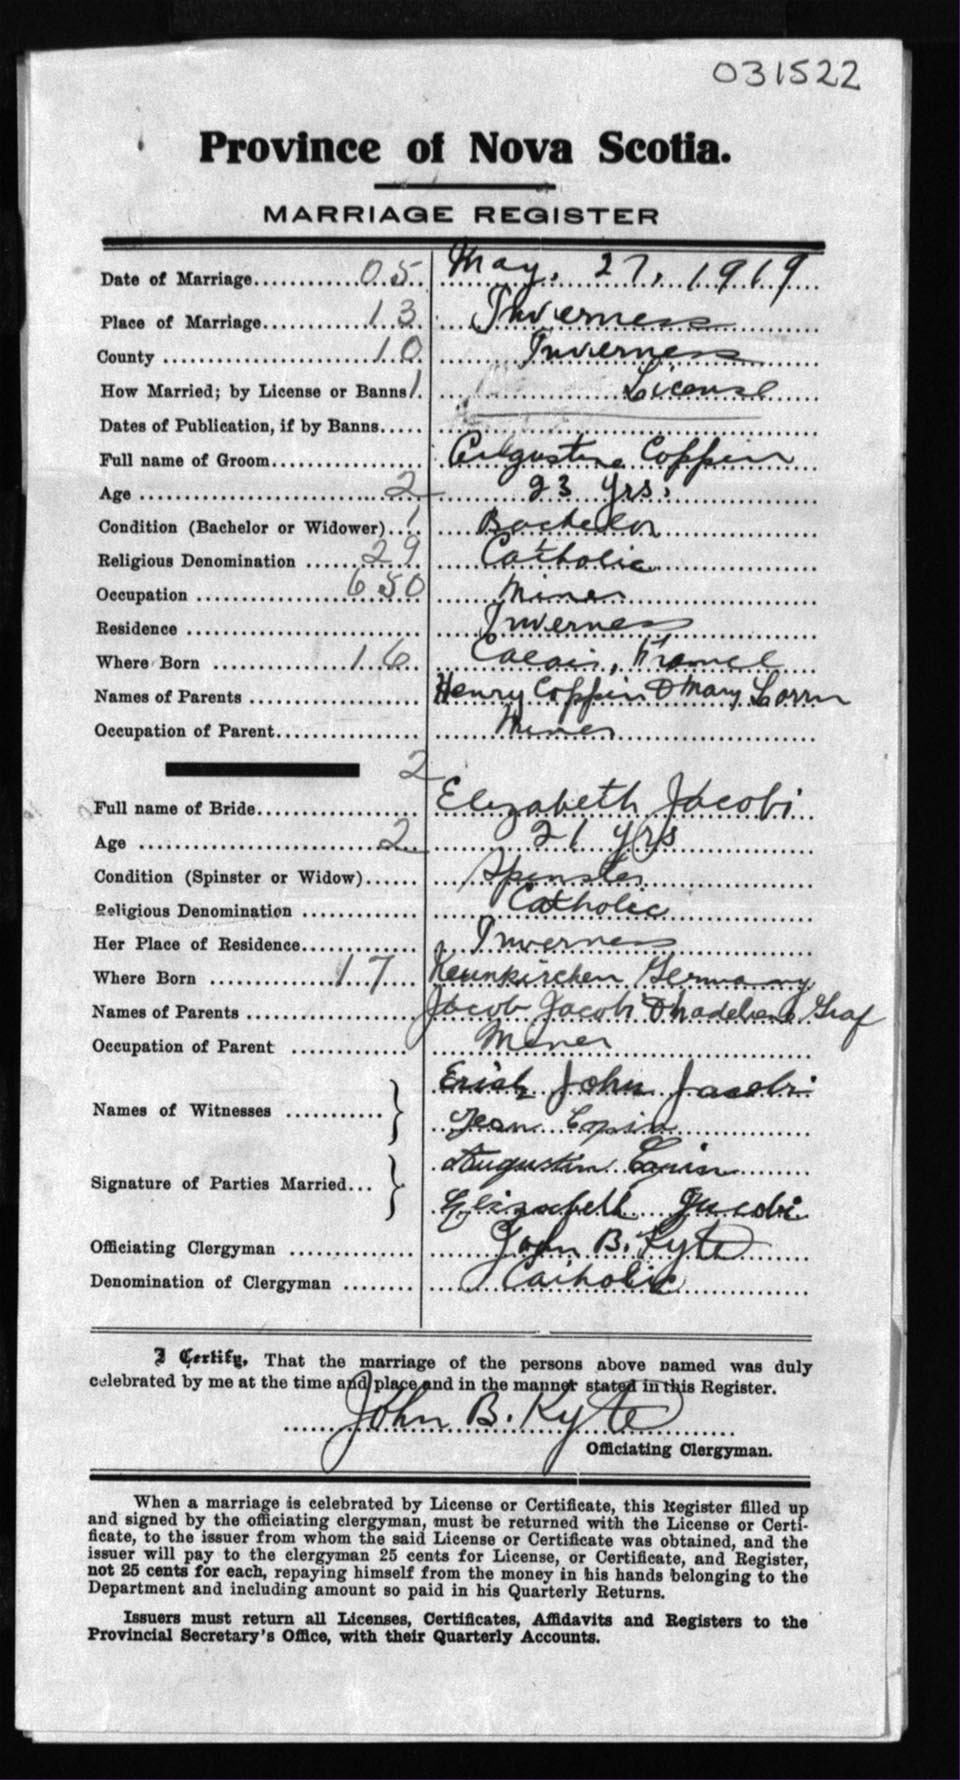 031522
Province of Nova Scotia.
MARRIAGE REGISTER
Date of Marriage............05.. May. 27, 1919
Place of Marriage............13. Inverness
County ............10. Inverness
How Married; by License or Banns 1. License
Dates of Publication, if by Banns.....
Full name of Groom............... Augustine Coppin
Age ............2 23 yrs.
Condition (Bachelor or Widower)..1. Bachelor
Religious Denomination ......29 Catholic
Occupation ............650 Miner
Residence ............ Inverness
Where Born ............16. Calais, France
Names of Parents ............ Henry Coppin & Mary
Occupation of Parent............ Miner
2
Full name of Bride............ Elizabeth Jacobi
Age ............2.. 21 yrs
Condition (Spinster or Widow)...... Spinster
Religious Denomination ............ Catholic
Her Place of Residence............ Inverness
Where Born ............17 Neunkirchen Germany
Names of Parents ............ Jacob Jacobi & Madelene Graf
Occupation of Parent ............ Miner
Names of Witnesses ............ John Jacobi
Jean Copin
Signature of Parties Married... Augustin Copin
Elizabeth Jacobi
Officiating Clergyman ............ John B. Kyte
Denomination of Clergyman ........ Catholic
I Certify, That the marriage of the persons above named was duly
celebrated by me at the time and place and in the manner stated in this Register.
John B. Kyte
Officiating Clergyman.
When a marriage is celebrated by License or Certificate, this Register filled up
and signed by the officiating clergyman, must be returned with the License or Certi-
ficate, to the issuer from whom the said License or Certificate was obtained, and the
issuer will pay to the clergyman 25 cents for License, or Certificate, and Register,
not 25 cents for each, repaying himself from the money in his hands belonging to the
Department and including amount so paid in his Quarterly Returns.
Issuers must return all Licenses, Certificates, Affidavits and Registers to the
Provincial Secretary's Office, with their Quarterly Accounts.